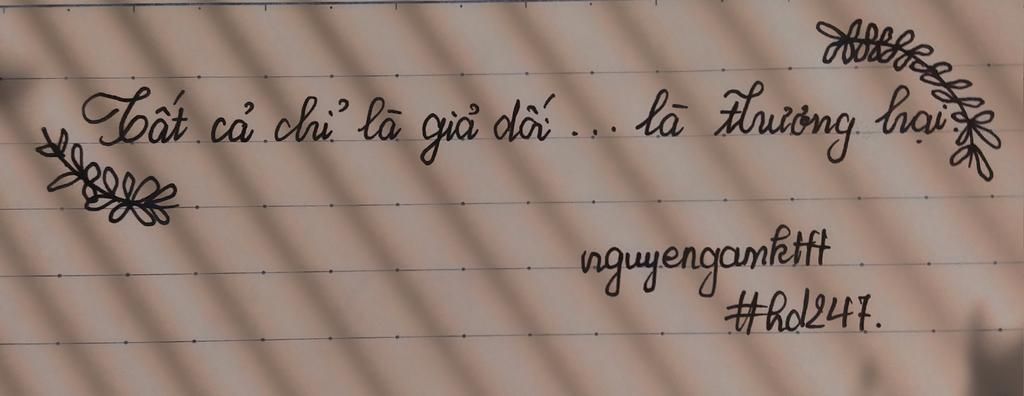 Tất cả chỉ là giả dối... là thương hại.
nguyengamktft
#hd247.